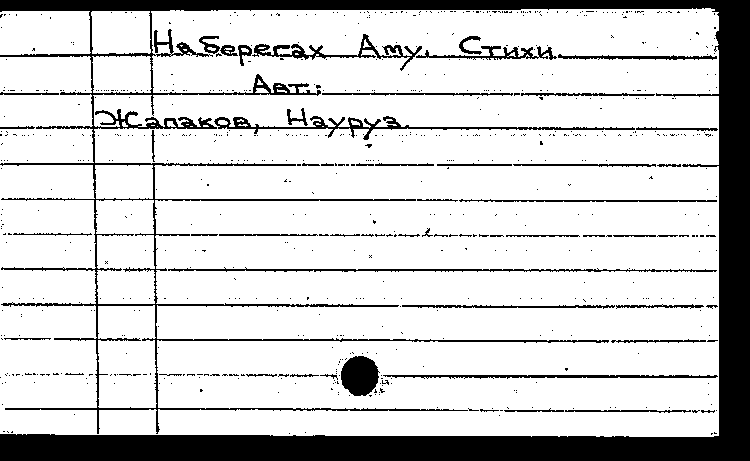 На берегах Аму. Стихи.
Авт.:
Жапаков, Науруз.